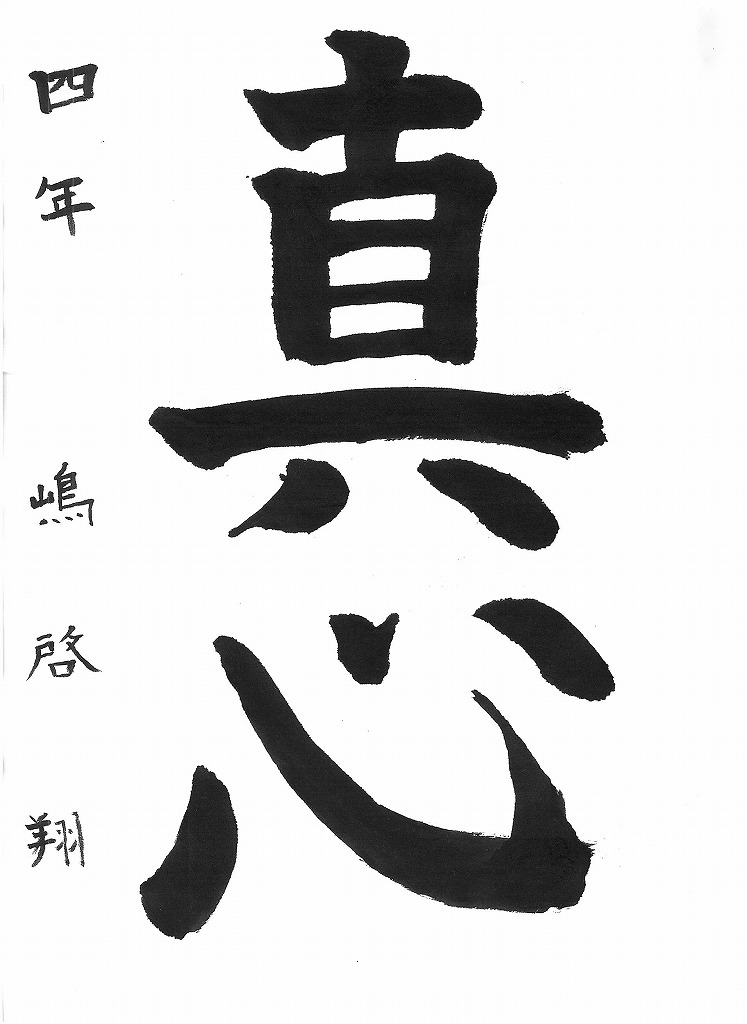 真心
四年 嶋啓翔